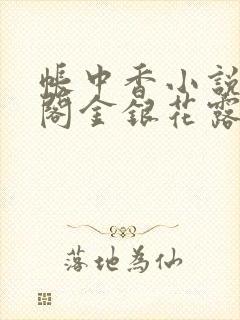 帳中香小說
閣金銀花露
落地為仙